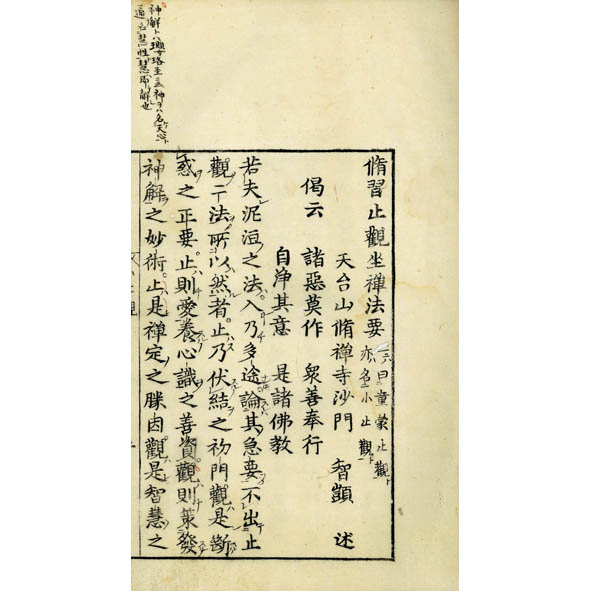 脩習止觀坐禪法要 一曰童蒙止觀
亦名小止觀
天台山脩禪寺沙門 智顗 述
偈云 諸惡莫作 衆善奉行
自淨其意 是諸佛教
若夫泥洹之法入乃多途論其急要不出止
觀二法所以然者止乃伏結之初門觀是斷
惑之正要止則愛養心識之善資觀則策發
神解之妙術止是禪定之勝因觀是智慧之